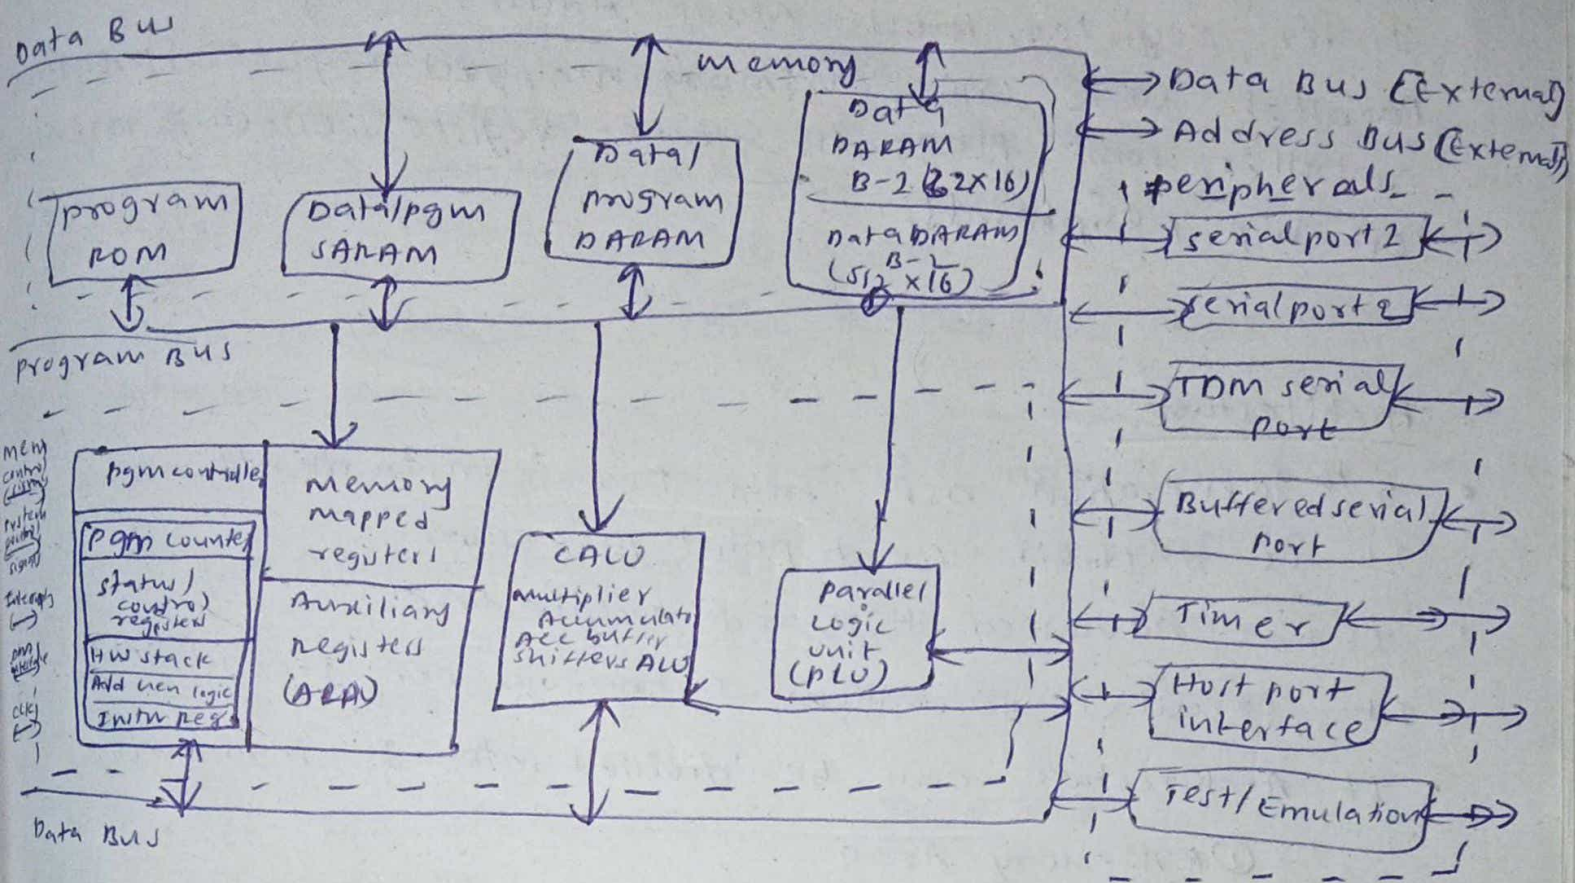 Data Bus
memory
Data Bus (External)
Address Bus (External)
peripherals
program
ROM
Data/pgm
SARAM
Data/
program
DARAM
Data
DARAM
B-2 (32x16)
Data DARAM
B-1
(512x16)
serial port 2
serial port 2
TDM serial
port
Buffered serial
port
Timer
Host port
interface
Test/Emulation
program Bus
mem
control
pgm controller
pgm counter
status/
control
registers
HW stack
Add gen logic
Instn Regs
memory
mapped
registers
Auxiliary
registers
(ARAU)
CALU
multiplier
Accumulato
Acc buffer
shifters ALU
parallel
Logic
unit
(PLU)
Data Bus